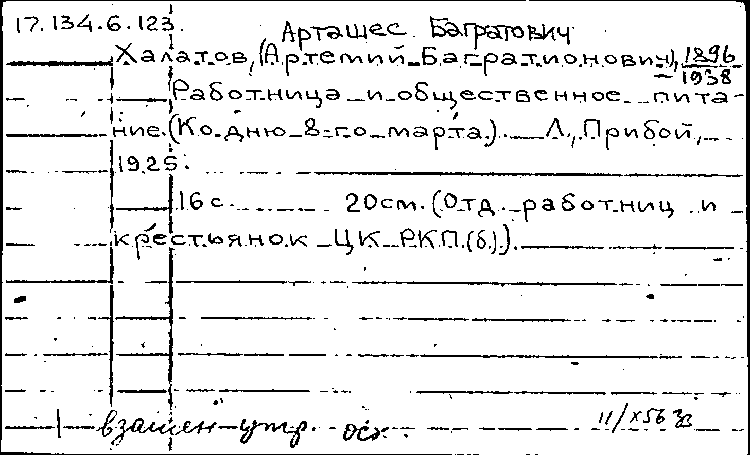 17.134.6.123.
Арташес Багратович
Халатов, (Артемий Багратионович), 1896
1938
Работница и общественное пита-
ние. (Ко дню 8-го марта.). Л., Прибой,
1925.
16 с. 20 см. (Отд. работниц и
крестьянок ЦК РКП.(б).).
взамен утр. осн.
11/X56